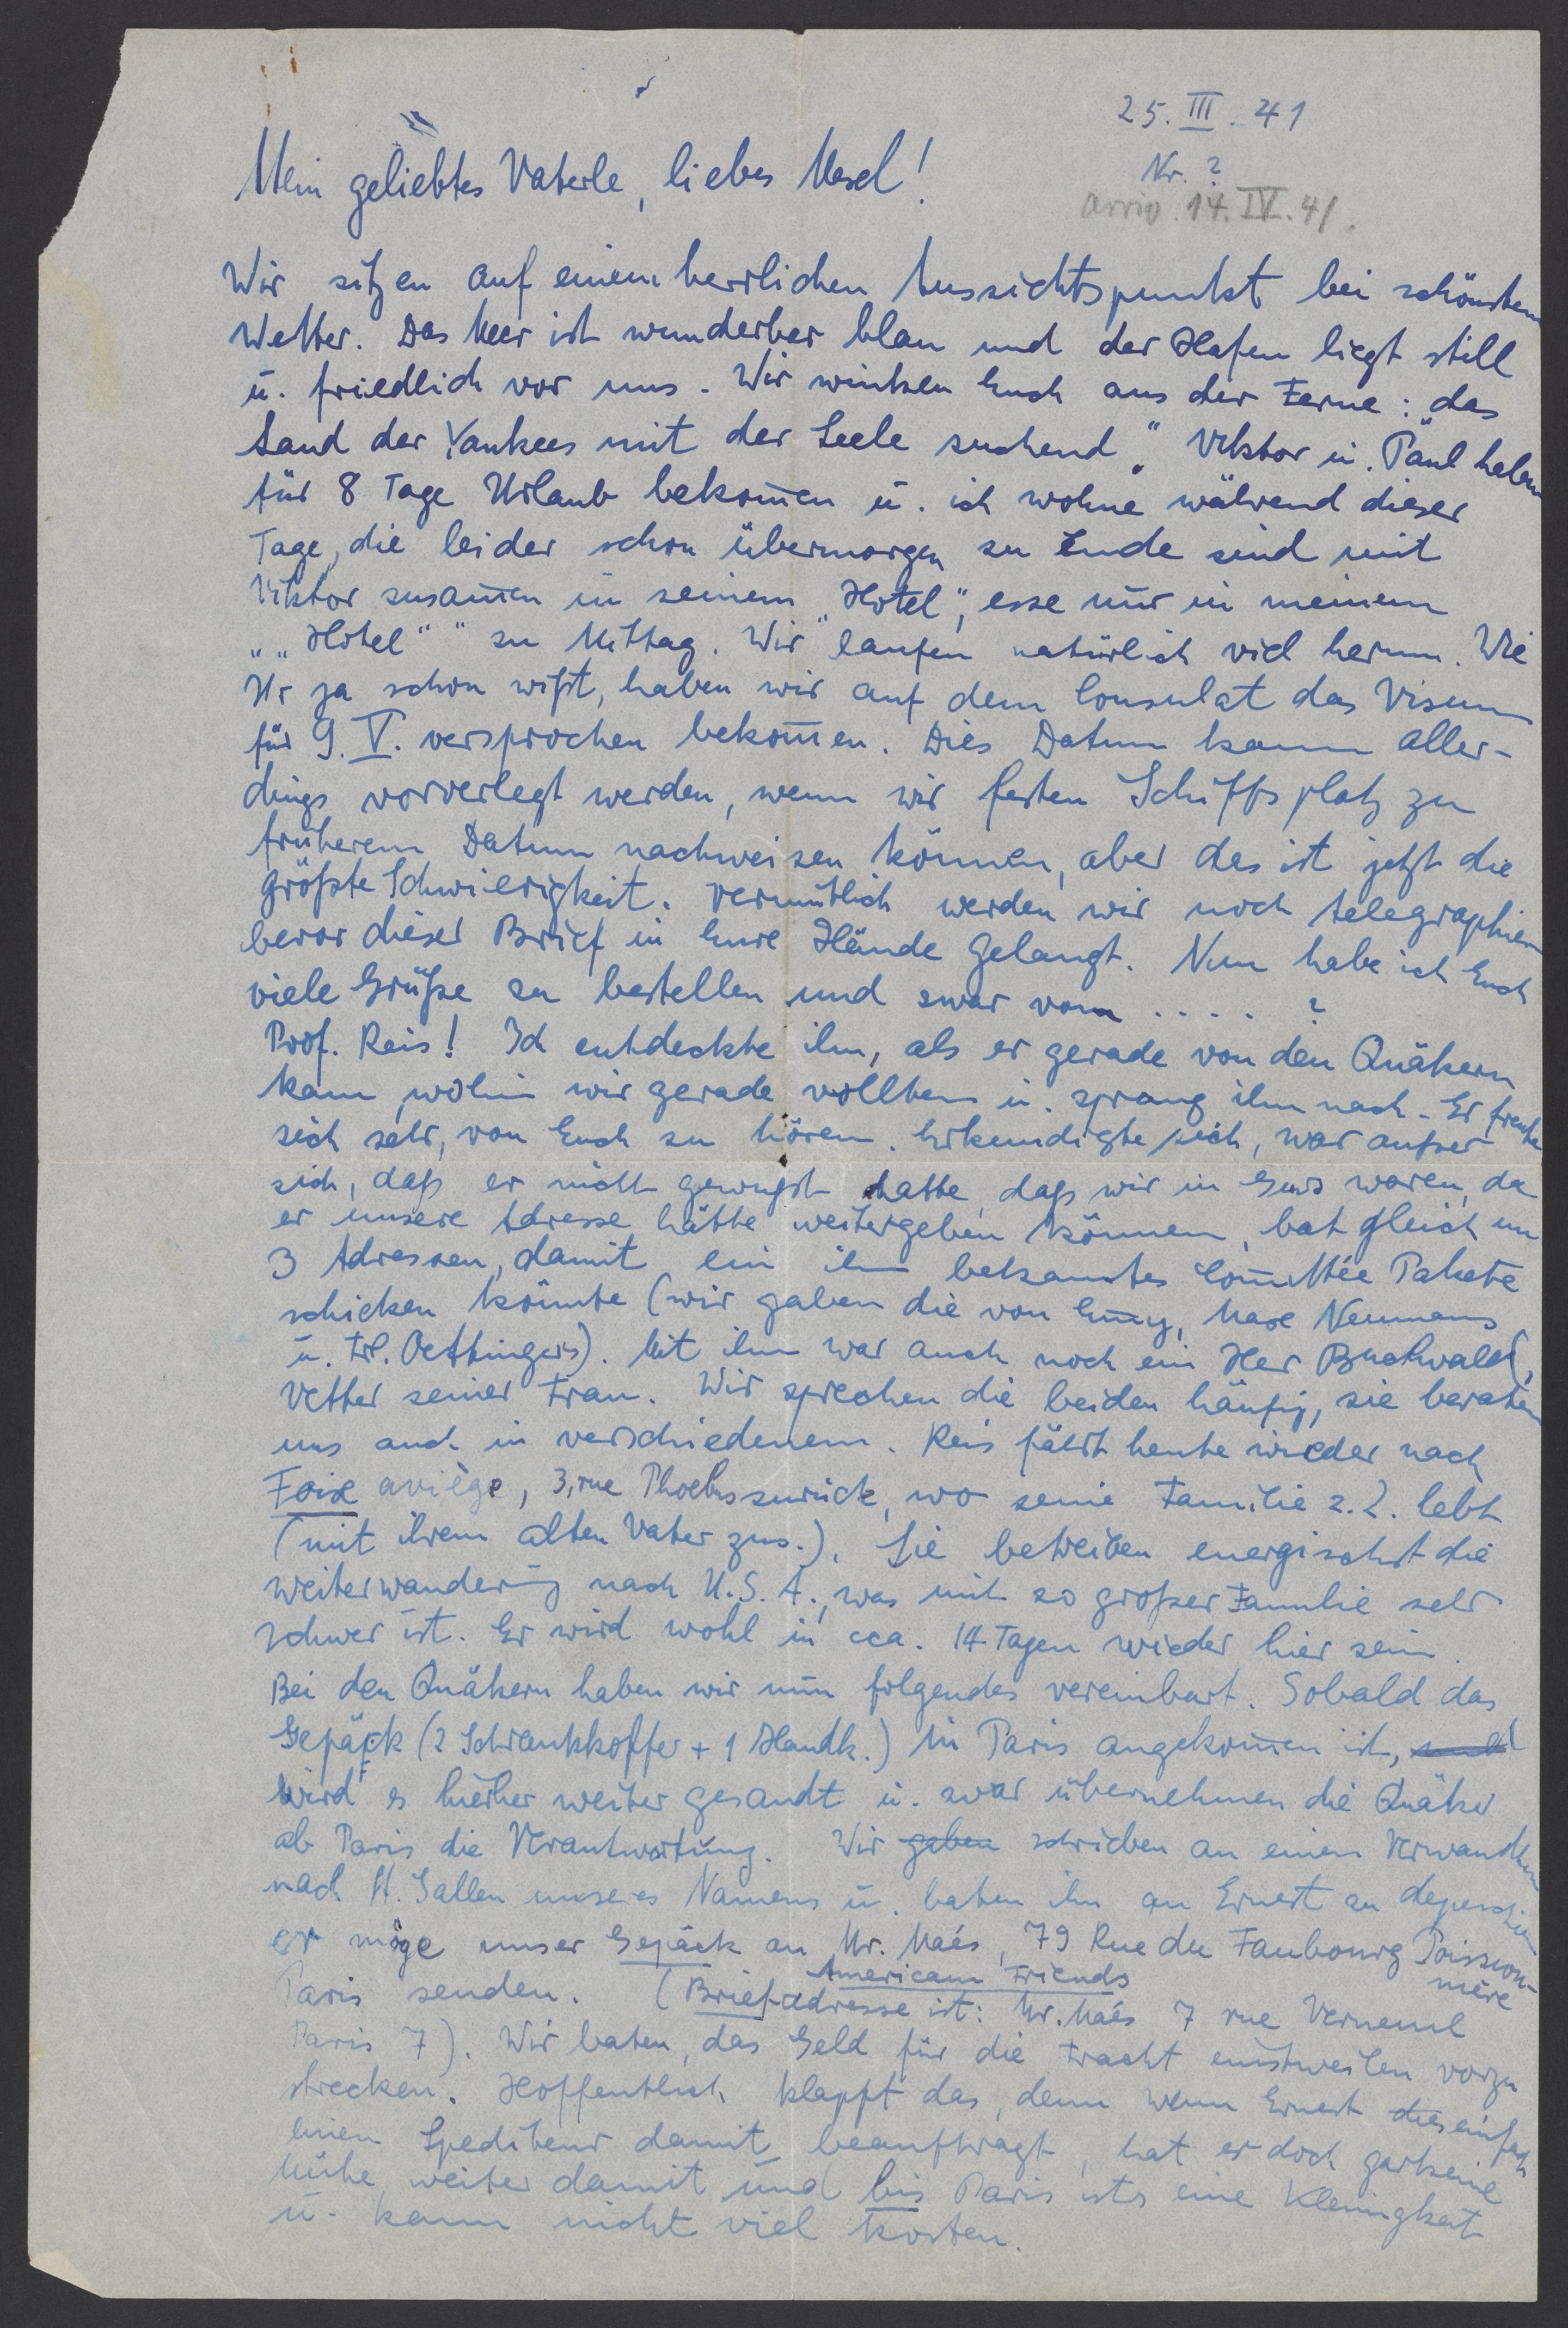 25. III. 41
Nr. ?
arriv. 14. IV. 41.
Mein geliebtes Vaterle, liebes Mesel!
Wir sitzen auf einem herrlichen Aussichtspunkt bei schönstem
Wetter. Das Meer ist wunderbar blau und der Hafen liegt still
u. friedlich vor uns. Wir winken Euch aus der Ferne: „das
Land der Yankees mit der Seele suchend". Viktor u. Paul haben
für 8 Tage Urlaub bekom̄en u. ich wohne während dieser
Tage, die leider schon übermorgen zu Ende sind mit
Viktor zusam̄en in seinem „Hotel", esse nur in meinem
„„Hotel"" zu Mittag. Wir laufen natürlich viel herum. Wie
Ihr ja schon wißt, haben wir auf dem Consulat das Visum
für 9. V. versprochen bekom̄en. Dies Datum kann aller-
dings vorverlegt werden, wenn wir festen Schiffsplatz zu
früherem Datum nachweisen können, aber das ist jetzt die
größte Schwierigkeit. Vermutlich werden wir noch telegraphieren
bevor dieser Brief in Eure Hände gelangt. Nun habe ich Euch
viele Grüße zu bestellen und zwar vom .... ?
Prof. Reis! Ich entdeckte ihn, als er gerade von den Quäkern
kam, wohin wir gerade wollten u. sprang ihm nach. Er freute
sich sehr, von Euch zu hören. Erkundigte sich, war außer
sich, daß er nicht gewußt hatte, daß wir in Gurs waren, da
er unsere Adresse hätte weitergeben können, bat gleich um
3 Adressen, damit ein ihm bekanntes Com̄ittée Pakete
schicken könnte (wir gaben die von Em̄y, Max Neumanns
u. Frl. Oettingers). Mit ihm war auch noch ein Herr Buchwald,
Vetter seiner Frau. Wir sprechen die beiden häufig, sie beraten
uns auch in verschiedenem. Reis fährt heute wieder nach
Foix ariège, 3, rue Phoebus zurück, wo seine Familie z. Z. lebt
(mit ihrem alten Vater zus.). Sie betreiben energischst die
Weiterwanderung nach U.S.A., was mit so großer Familie sehr
schwer ist. Er wird wohl in cca. 14 Tagen wieder hier sein.
Bei den Quäkern haben wir nun folgendes vereinbart. Sobald das
Gepäck (2 Schrankkoffer + 1 Handk.) in Paris angekom̄en ist,
wird es hierher weiter gesandt u. zwar übernehmen die Quäker
ab Paris die Verantwortung. Wir gaben schrieben an einen Verwandten
nach St. Gallen unseres Namens u. baten ihn an Ernest zu depeschieren
er möge unser Gepäck an Mr. Maés, 79 Rue du Faubourg Poisson-
nière
Paris senden. (Briefadresse ist: American Friends Mr. Maés 7 rue Verneuil
Paris 7). Wir baten, das Geld für die Fracht einstweilen vorzu
strecken. Hoffentlich klappt das, denn wenn Ernest dies einfach
einen Spediteur damit beauftragt, hat er doch garkeine
Mühe weiter damit und bis Paris ists eine Kleinigkeit
u. kann nicht viel kosten.